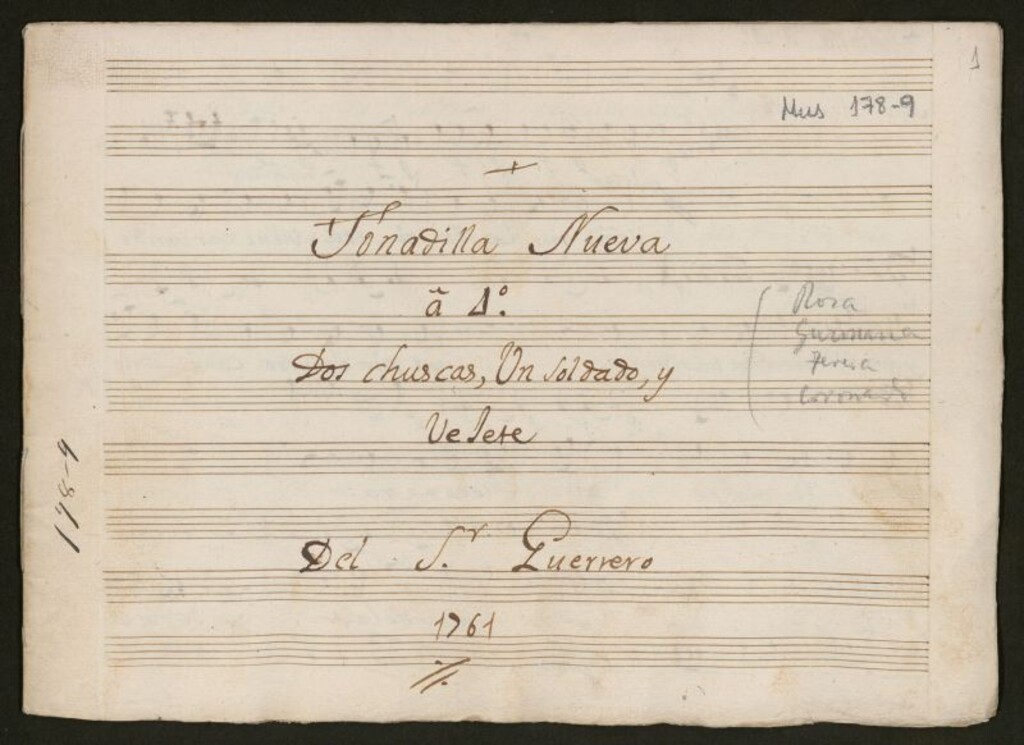 1
Mus 178-9
+
Tonadilla Nueva
â 4º.
Dos chuscas, Un soldado, y
Vejete
Rosa
Guzmana
Teresa
Coronado
Del S.r Guerrero
1761
178-9